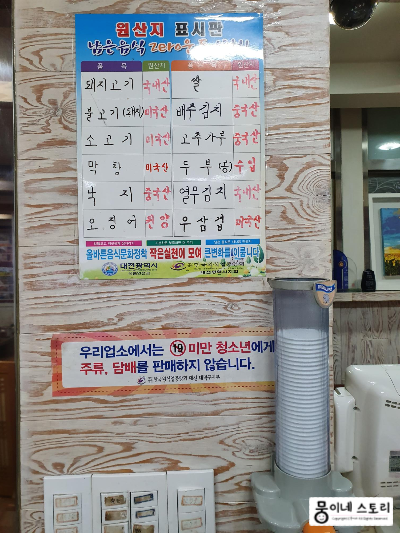 원산지 표시판
남은음식 zero운동
품 목 원산지 품 목 원산지
돼지고기 국내산 쌀 국내산
불고기(돼지) 미국산 배추김치 중국산
소고기 미국산 고추가루 중국산
막창 미국산 두부(콩) 수입
낙지 중국산 열무김치 국내산
오징어 원양 우삼겹 미국산
올바른음식문화정착 작은실천이 모여 큰변화를이룹니다
대전광역시
우리업소에서는 19 미만 청소년에게
주류, 담배를 판매하지 않습니다.
뭉이네 스토리